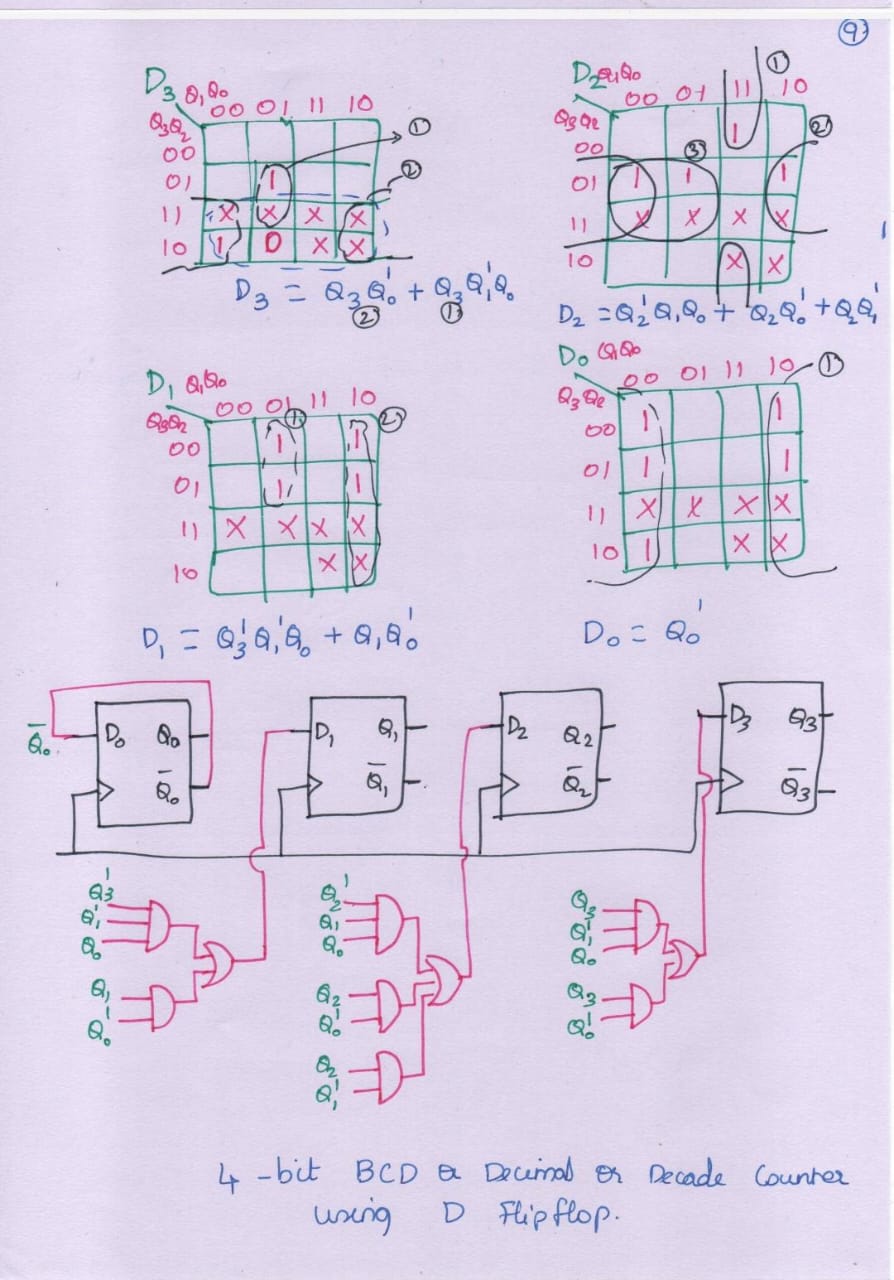 9
D3 Q1Q0
Q3Q2 00 01 11 10
00
01 1 ①
11 X X X X ②
10 1 0 X X
D3 = Q3Q0' + Q3Q1'Q0
② ①
D2 Q1Q0 ①
Q3Q2 00 01 11 10
00 1 ②
01 1 1 1 ③
11 X X X X
10 X X
D2 = Q2'Q1Q0 + Q2Q0' + Q2Q1'
D1 Q1Q0
Q3Q2 00 01 11 10
00 1 1 ① ②
01 1 1
11 X X X X
10 X X
D1 = Q3'Q1'Q0 + Q1Q0'
D0 Q1Q0
Q3Q2 00 01 11 10 ①
00 1 1
01 1 1
11 X X X X
10 1 X X
D0 = Q0'
Q̅0 D0 Q0 D1 Q1 D2 Q2 D3 Q3
Q̅0 Q̅1 Q̅2 Q̅3
Q3' Q2' Q3
Q1' Q1 Q1'
Q0 Q0 Q0
Q1 Q2 Q3
Q0' Q0' Q0'
Q2
Q1'
4-bit BCD or Decimal or Decade Counter
using D Flipflop.